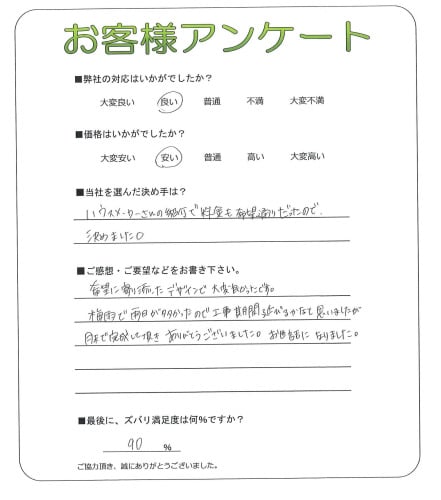 お客様アンケート
■弊社の対応はいかがでしたか？
大変良い 良い 普通 不満 大変不満
■価格はいかがでしたか？
大変安い 安い 普通 高い 大変高い
■当社を選んだ決め手は？
ハウスメーカーさんの紹介で料金も希望通りだったので、
決めました。
■ご感想・ご要望などをお書き下さい。
希望に寄り添ったデザインで大変良かったです。
梅雨で雨日が多かったので工事期間延びるかなと思いましたが
で完成して頂きありがとうございました。お世話になりました。
■最後に、ズバリ満足度は何％ですか？
90 %
ご協力頂き、誠にありがとうございました。